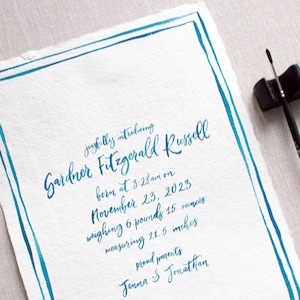 joyfully introducing
Gardner Fitzgerald Russell
born at 3:28am on
November 23, 2023
weighing 6 pounds 15 ounces
measuring 21.5 inches
proud parents
Jenna & Jonathan